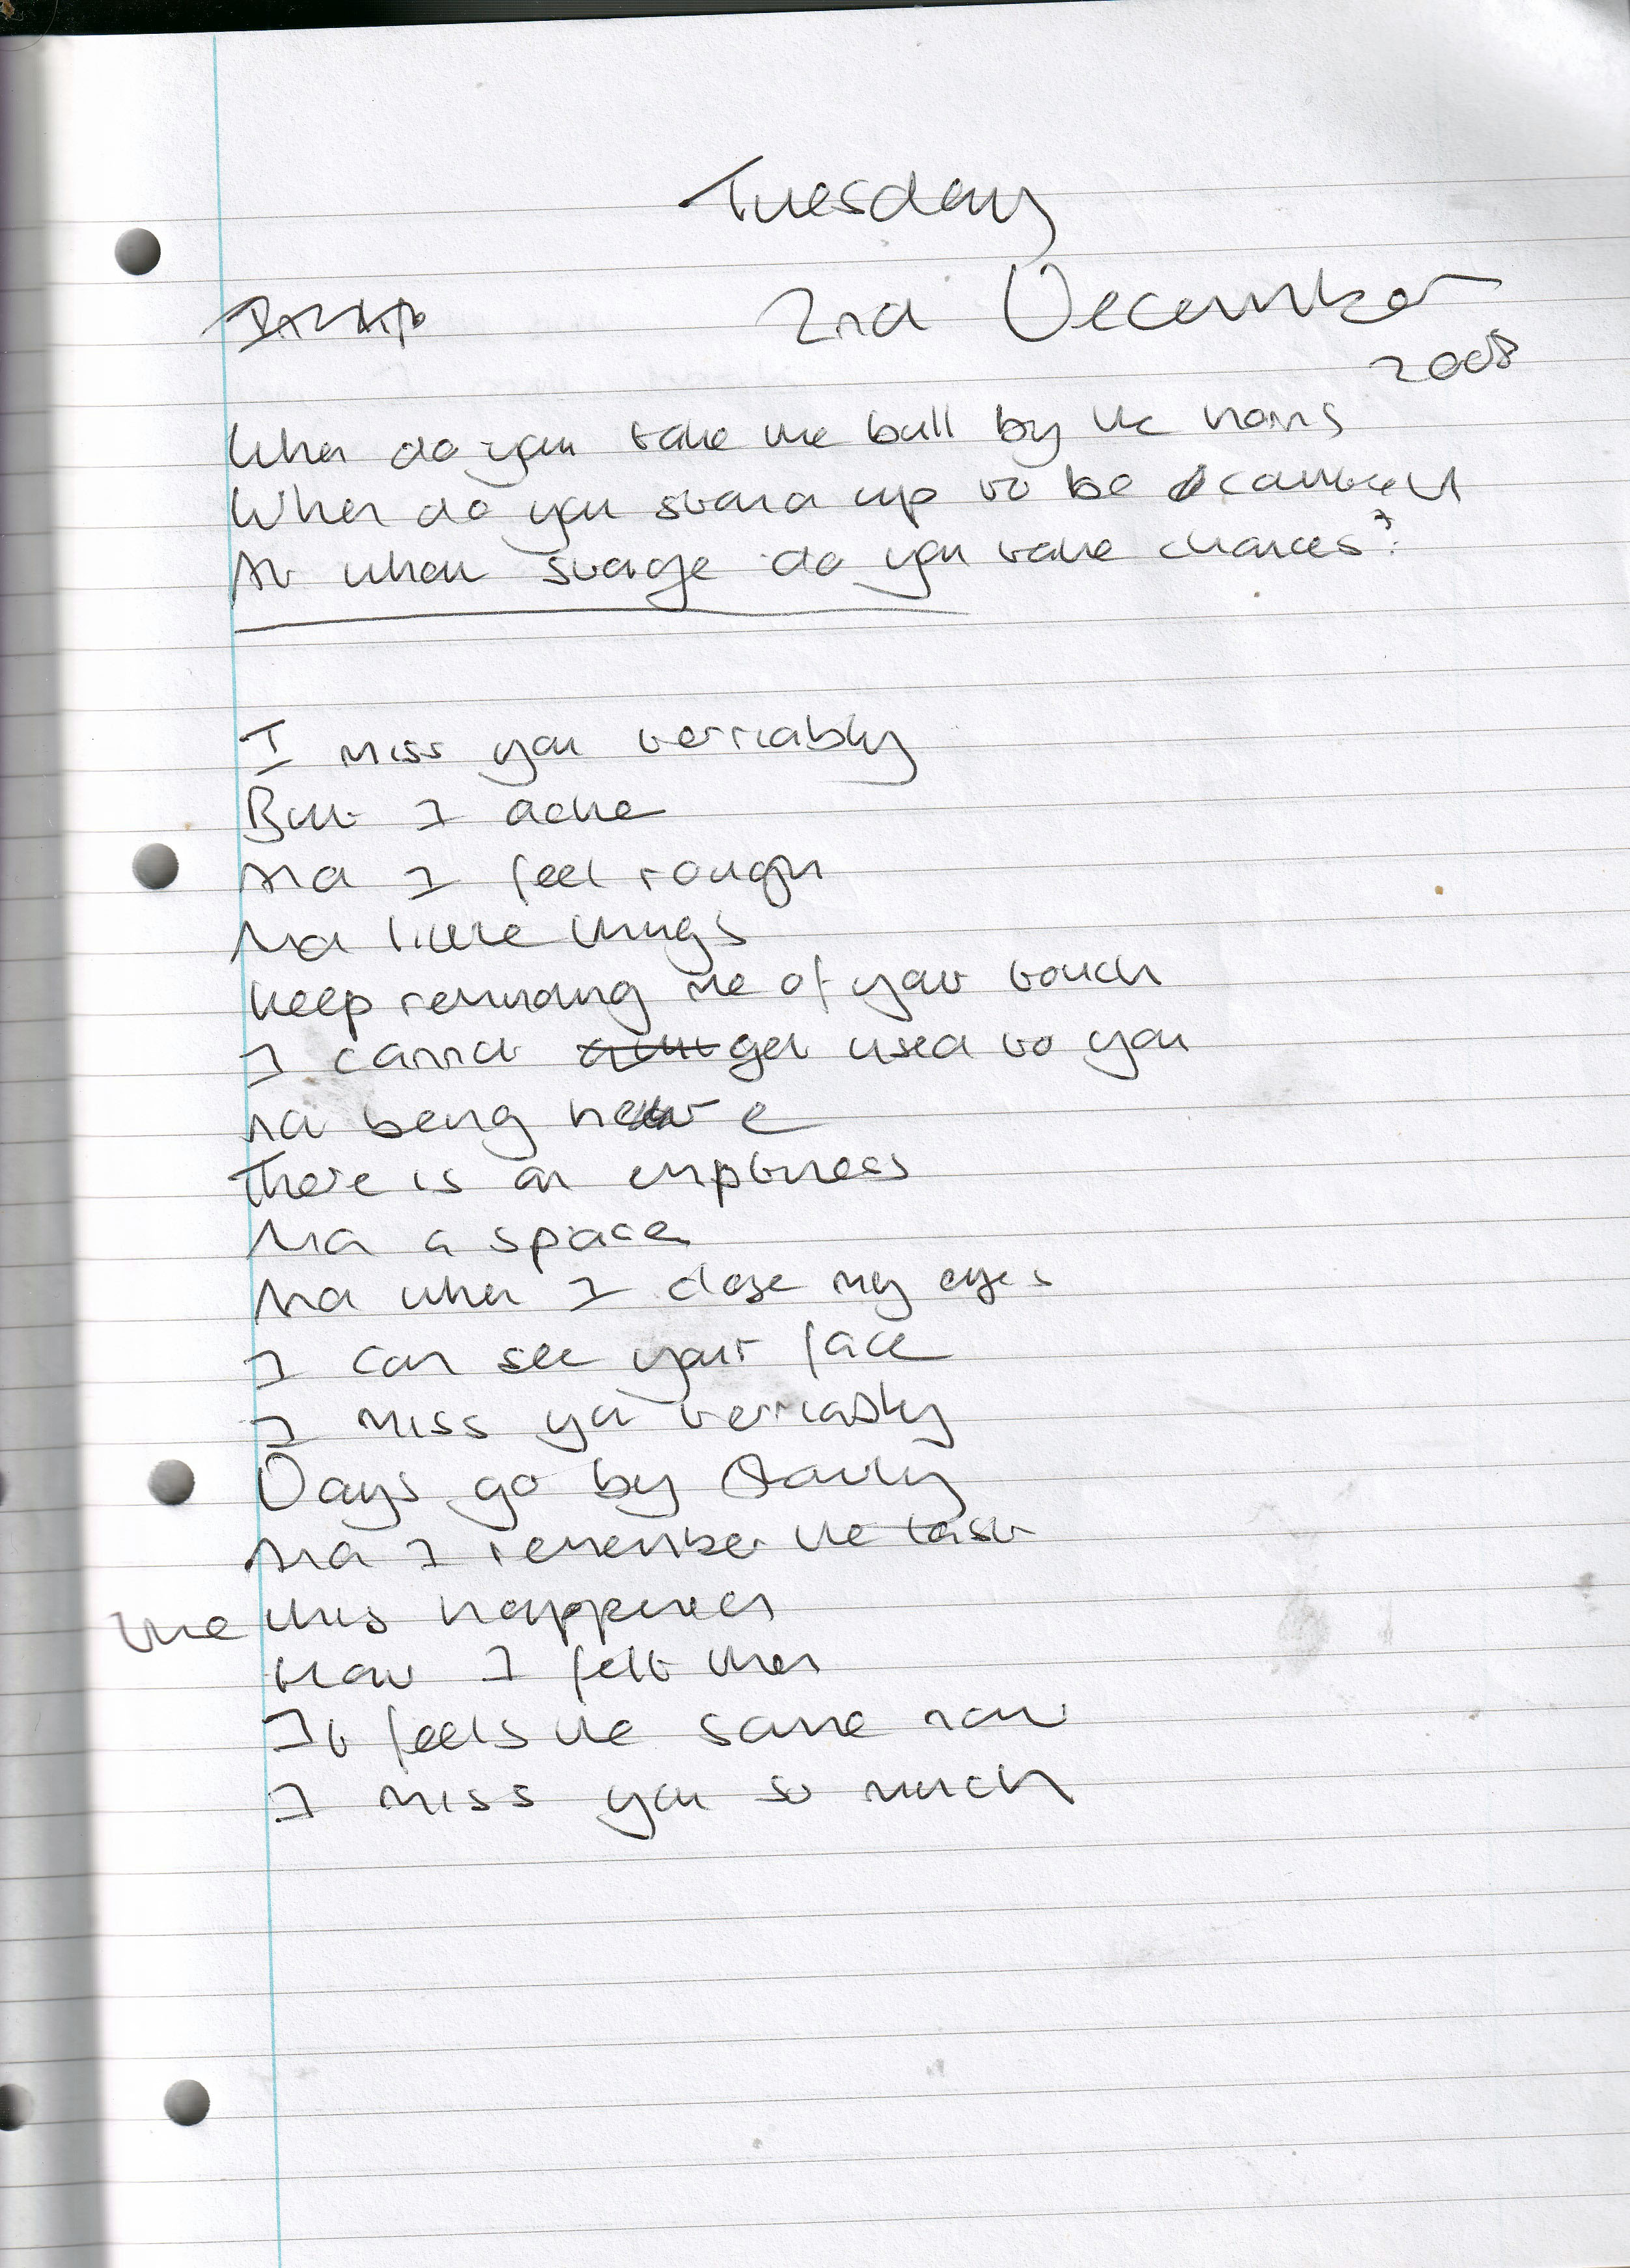 Tuesday
2nd December
2008
When do you take the bull by the horns
When do you stand up to be
At when stage do you take chances?
I miss you terriably
But I ache
And I feel rough
And little things
keep reminding me of your touch
I cannot get used to you
not being here
There is an emptiness
And a space
And when I close my eyes
I can see your face
I miss you terriably
Days go by daily
And I remember the last
time this happened
How I felt then
It feels the same now
I miss you so much